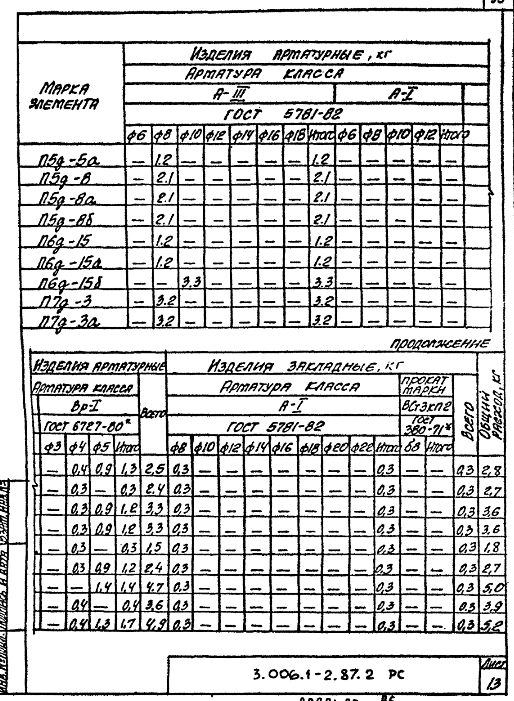 Изделия арматурные, кг
Марка элемента
Арматура класса
А-III А-I
ГОСТ 5781-82
ф6 ф8 ф10 ф12 ф14 ф16 ф18 Итого ф6 ф8 ф10 ф12 Итого
П5д-5а — 1.2 — — — — — 1.2 — — — — —
П5д-8 — 2.1 — — — — — 2.1 — — — — —
П5д-8а — 2.1 — — — — — 2.1 — — — — —
П5д-8б — 2.1 — — — — — 2.1 — — — — —
П6д-15 — 1.2 — — — — — 1.2 — — — — —
П6д-15а — 1.2 — — — — — 1.2 — — — — —
П6д-15б — — 3.3 — — — — 3.3 — — — — —
П7д-3 — 3.2 — — — — — 3.2 — — — — —
П7д-3а — 3.2 — — — — — 3.2 — — — — —
продолжение
Изделия арматурные Изделия закладные, кг
Арматура класса Всего Арматура класса Прокат марки Всего Общий расход, кг
Вр-I А-I ВСт3кп2
ГОСТ 6727-80* ГОСТ 5781-82 ГОСТ 380-71*
ф3 ф4 ф5 Итого ф8 ф10 ф12 ф14 ф16 ф18 ф20 ф22 Итого δ8 Итого
— 0,4 0,9 1,3 2,5 0,3 — — — — — — — 0,3 — — 0,3 2,8
— 0,3 — 0,3 2,4 0,3 — — — — — — — 0,3 — — 0,3 2,7
— 0,3 0,9 1,2 3,3 0,3 — — — — — — — 0,3 — — 0,3 3,6
— 0,3 0,9 1,2 3,3 0,3 — — — — — — — 0,3 — — 0,3 3,6
— 0,3 — 0,3 1,5 0,3 — — — — — — — 0,3 — — 0,3 1,8
— 0,3 0,9 1,2 2,4 0,3 — — — — — — — 0,3 — — 0,3 2,7
— — 1,4 1,4 4,7 0,3 — — — — — — — 0,3 — — 0,3 5,0
— 0,4 — 0,4 3,6 0,3 — — — — — — — 0,3 — — 0,3 3,9
— 0,4 1,3 1,7 4,9 0,3 — — — — — — — 0,3 — — 0,3 5,2
3.006.1-2.87.2 РС
Лист
13